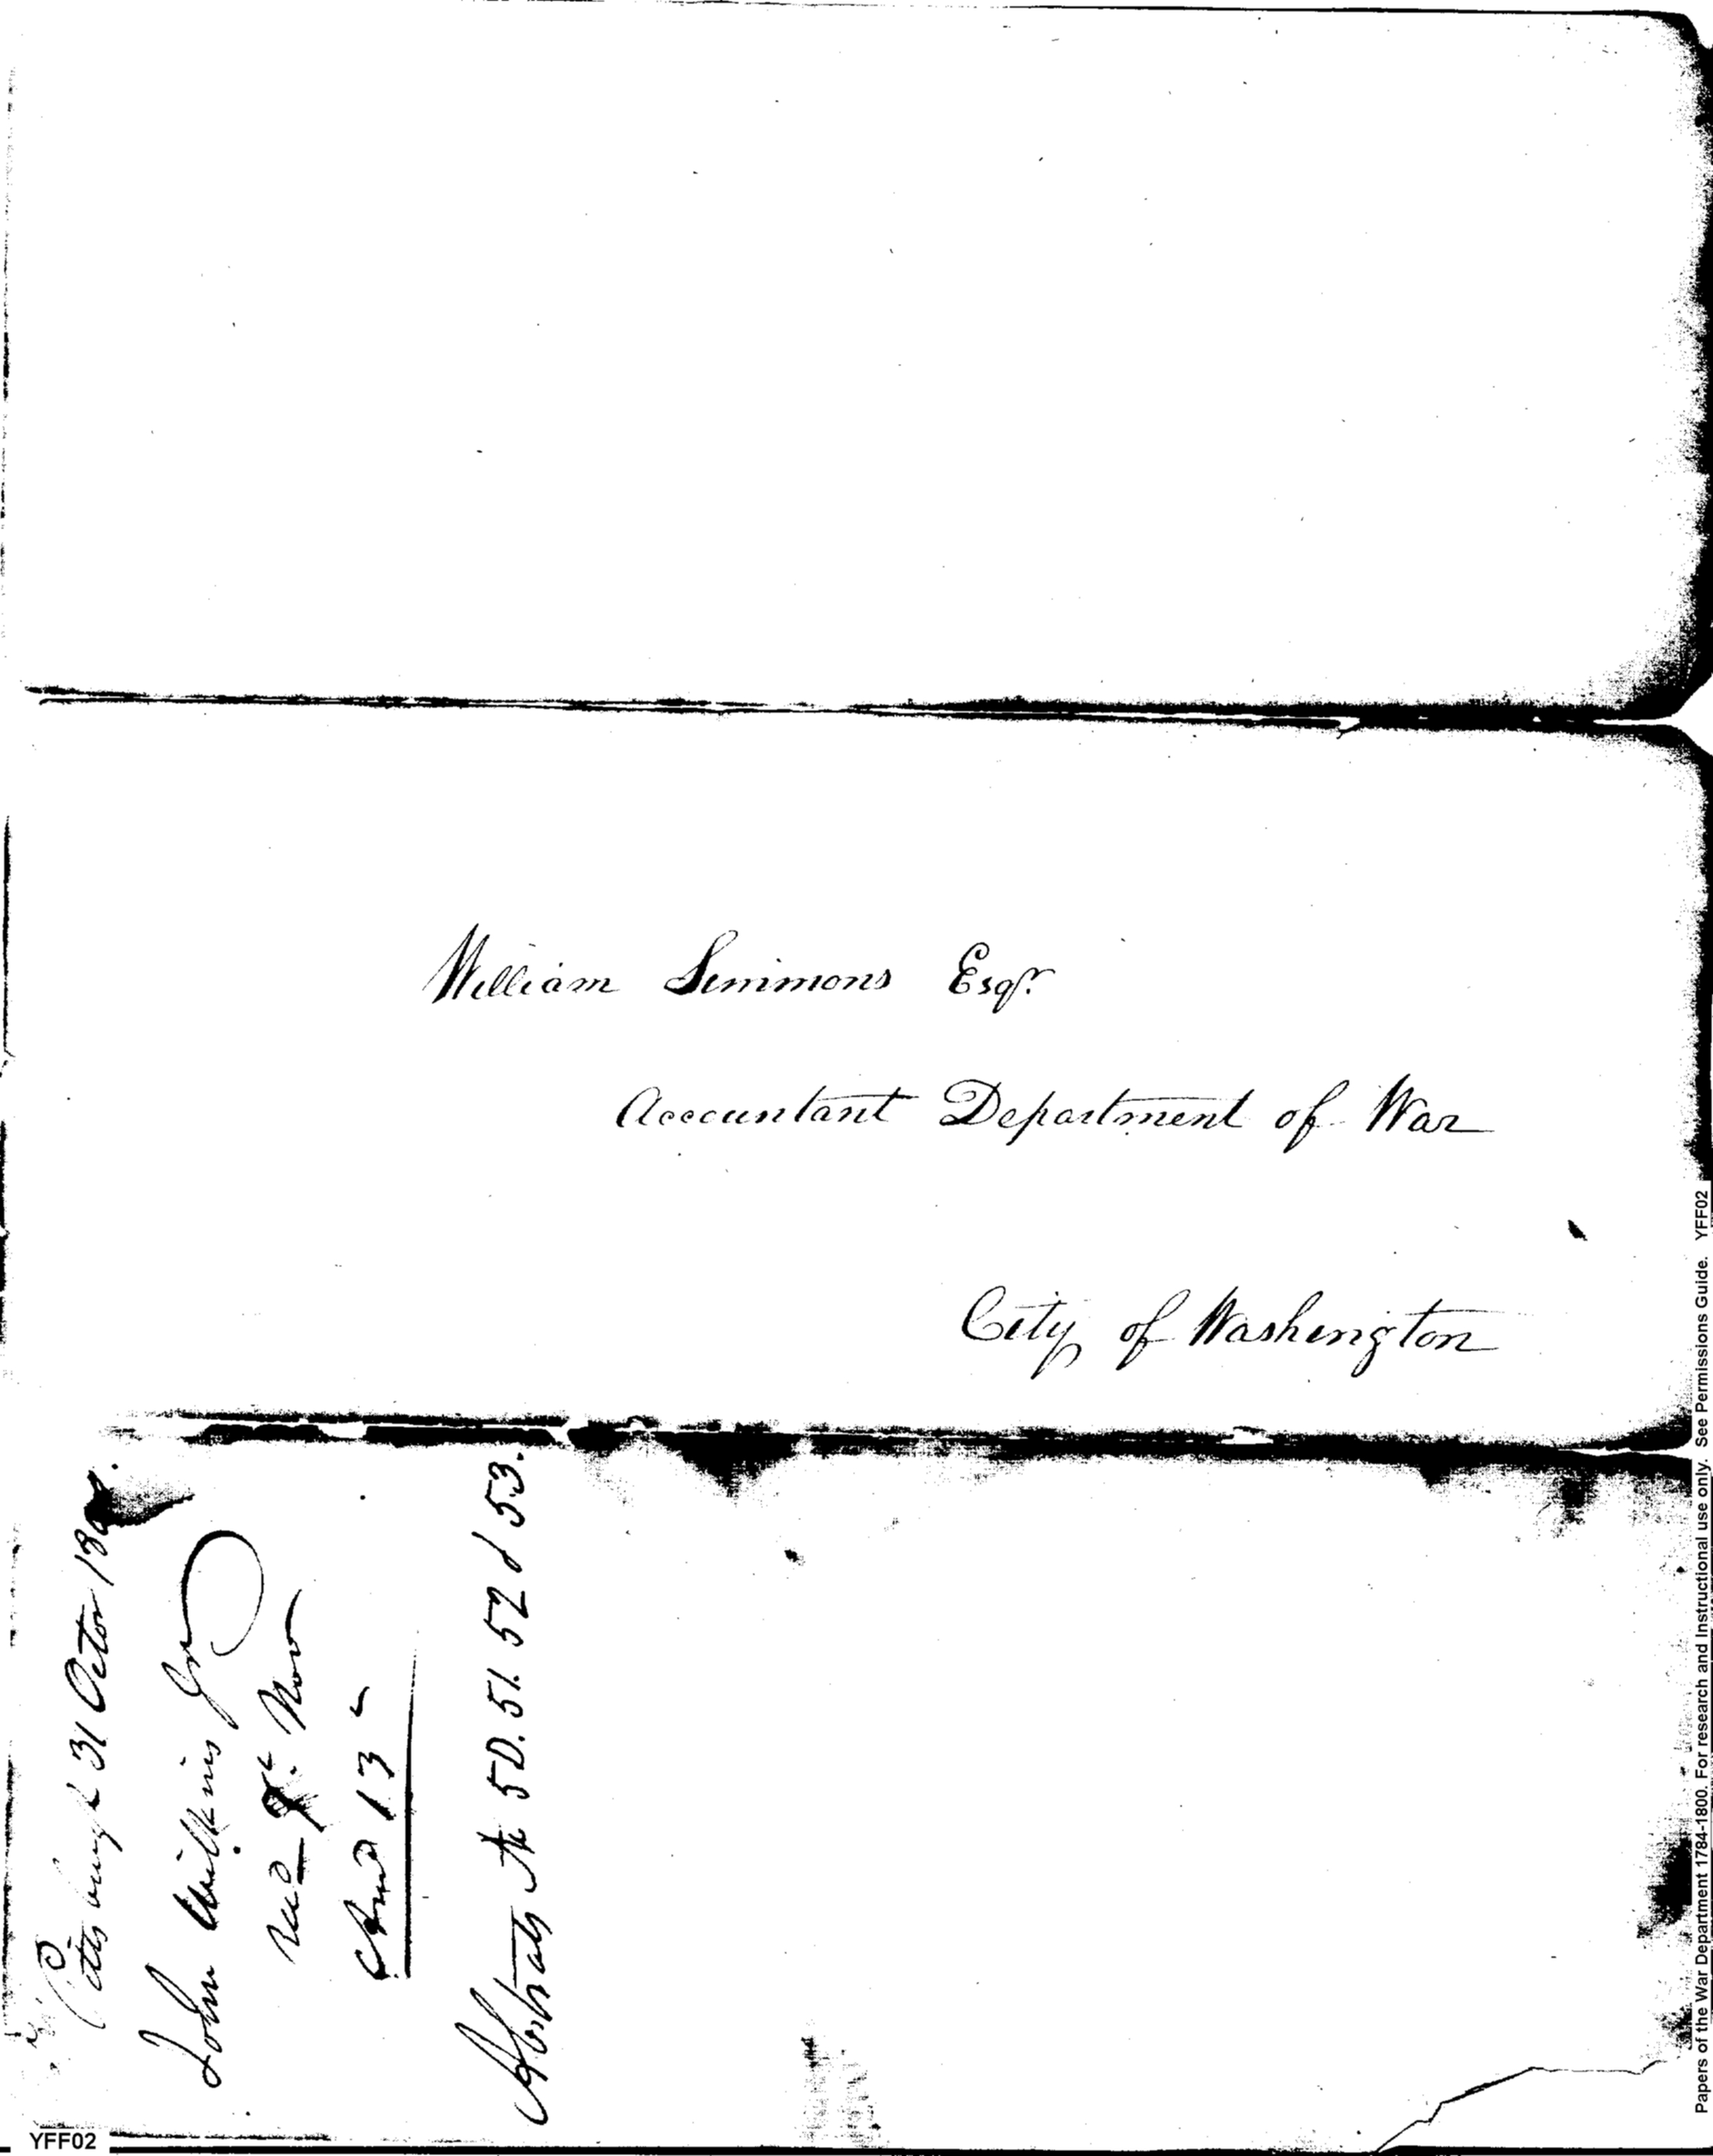 William Simmons Esqr.
Accountant Department of War
City of Washington
Pittsburgh 31 Octor
John Wilkins Jr
Recd Nov
Ansd 13
Abstracts 50. 51. 52 & 53.
YFF02
Papers of the War Department 1784-1800. For research and Instructional use only. See Permissions Guide. YFF02